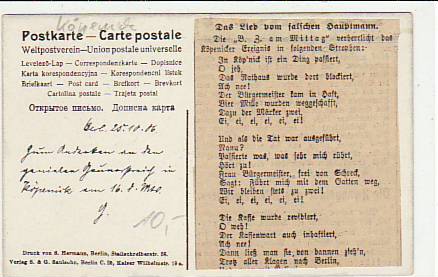 Köpenick
Postkarte — Carte postale
Weltpostverein — Union postale universelle
Levelező-Lap — Correspondenzkarte — Dopisnice
Karta korespondencyjna — Korespondenčni listek
Brielkaart — Post card — Brefkort — Brevkort
Cartolina postale — Tarjeta postal
Открытое письмо. Дописна карта
Bel. 25.10.06
Zum Andenken an den
genialen Gaunerstreich in
Köpenick am 16. d. Mts.
G.
10,-
Druck von S. Hermann, Berlin, Stallschreiberstr. 56.
Verlag S. & G. Saulsohn, Berlin C. 25, Kaiser Wilhelmstr. 19a.
Das Lied vom falschen Hauptmann.
Die „B. Z. am Mittag" verherrlicht das
Köpenicker Ereignis in folgenden Strophen:
In Köp'nick ist ein Ding passiert,
O jeh,
Das Rathaus wurde dort blockiert,
Ach nee!
Der Bürgermeister kam in Haft,
Vier Mille wurden weggeschafft,
Dazu der Märker zwei.
Ei, ei, ei, ei, ei, ei!
Und als die Tat war ausgeführt,
Nanu?
Passierte was, was sehr mich rührt,
Hört zu!
Frau Bürgermeister, frei von Schreck,
Sagt: Führt mich mit dem Gatten weg,
Wir bleiben stets zu zwei!
Ei, ei, ei, ei, ei!
Die Kasse wurde revidiert,
O weh!
Der Kassenwart auch inhaftiert,
Ach nee!
Dann ließ man sie von dannen zieh'n,
Trotz aller Klagen nach Berlin,